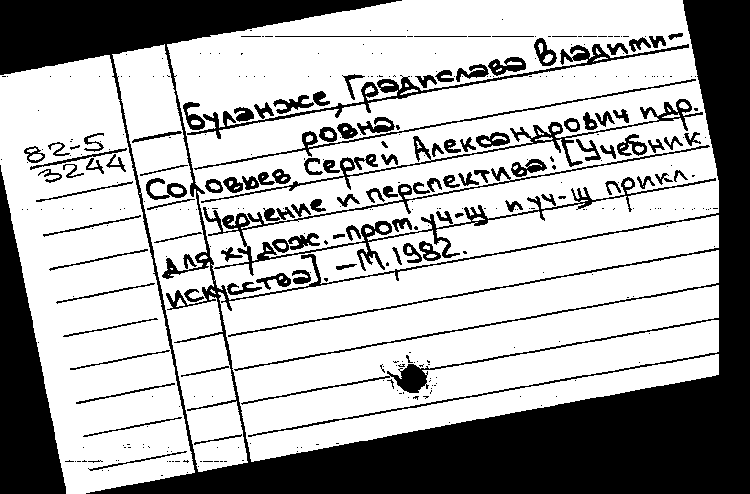 Буланже, Градислава Владими-
ровна.
82-5
3244
Соловьев, Сергей Александрович и др.
Черчение и перспектива: [Учебник
для худож.-пром. уч-щ и уч-щ прикл.
искусства]. -М.,1982.